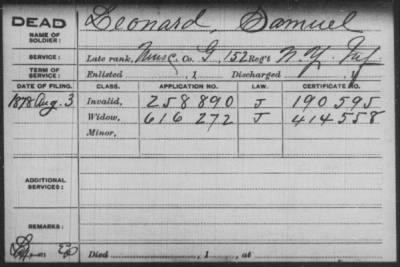 DEAD Leonard, Samuel
NAME OF SOLDIER:
SERVICE: Late rank, Musc Co. G, 152 Reg't N.Y. Inf.
TERM OF SERVICE: Enlisted , 1 Discharged , 1
DATE OF FILING. CLASS. APPLICATION NO. LAW. CERTIFICATE NO.
1878 Aug. 3 Invalid, 258 890 J 190 595
Widow, 616 272 J 414 558
Minor,
ADDITIONAL SERVICES:
REMARKS:
Died , 1 , at